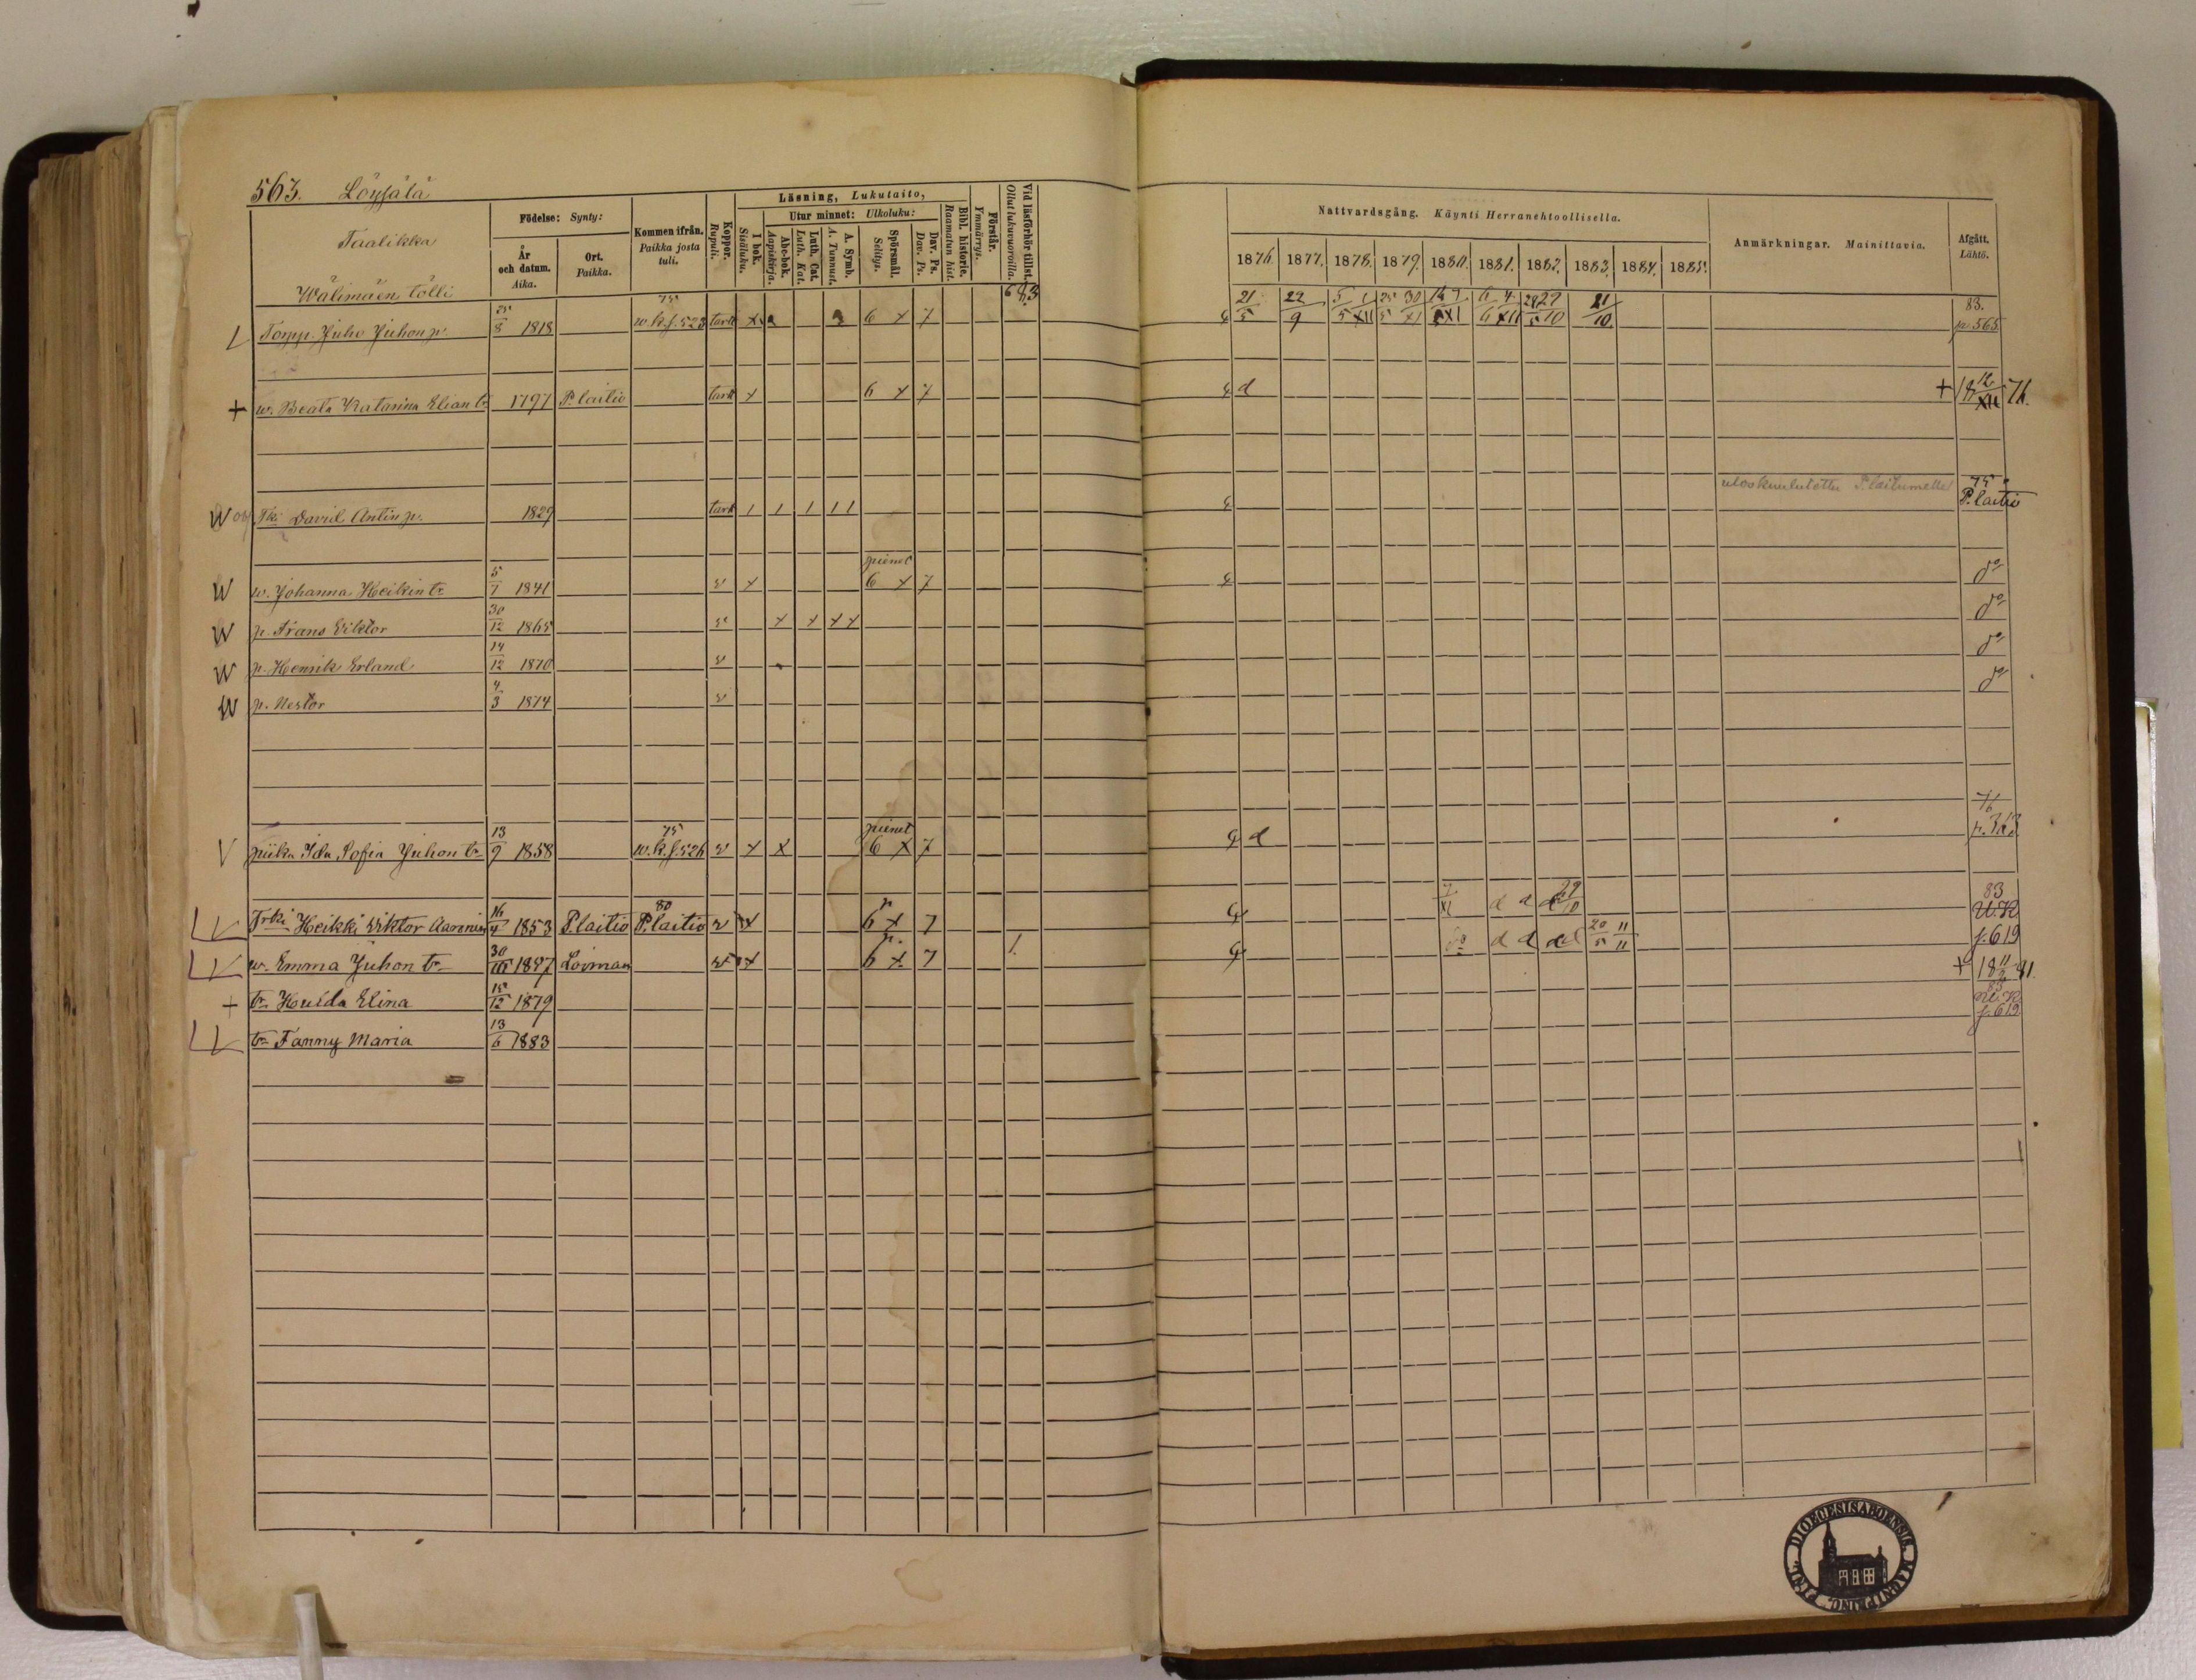 563. Löyfälä
Taalikka
Wälimäen tölli
Födelse: Synty:
År och datum. Aika.
Ort. Paikka.
Kommen ifrån. Paikka josta tuli.
Koppor. Rupuli.
Läsning, Lukutaito,
I bok. Sisäluku.
Utur minnet: Ulkoluku:
Abc-bok. Aapiskirja.
Luth. Cat. Luth. Kat.
A. Symb. A. Tunnust.
Spörsmål. Selitys.
Dav. Ps. Dav. Ps.
Bibl. historie. Raamatun hist.
Förstår. Ymmärrys.
Vid läsförhör tillst. Ollut lukuvuoroilla.
Nattvardsgång. Käynti Herranehtoollisella.
1876. 1877. 1878. 1879. 1880. 1881. 1882. 1883. 1884. 1885.
Anmärkningar. Mainittavia.
Afgått. Lähtö.
Torpp. Juho Juhon p. 25/8 1818 75 w.k.s. 523 tark x 6 x 7 21/5 22/9 21/10 83. p. 565
+ w. Beata Katarina Elian tr. 1797 P.laitio tark x 6 x 7 d + 18 12/XII 76.
Tki David Antin p. 1829 tark 1 1 1 1 1 75 P.laitio
w. Johanna Heikin tr. 5/7 1841 v x pienet 6 x 7 do
p. Frans Viktor 30/12 1865 v x x x x do
p. Henrik Erland 14/12 1870 v do
p. Nestor 4/3 1874 v do
piika Ida Sofia Juhon tr. 13/9 1858 75 w.k.s. 526 v x x pienet 6 x 7 d 76
Trki Heikki Viktor Aaronin 16/4 1853 P.laitio 80 P.laitio v x 6 x 7 7/XI d d d 29/10 83 U.K
w. Emma Juhon tr. 30/III Loimaa v x 6 x 7 1. do d d d d 20/5 11/11 s. 619
+ tr. Hulda Elina 15/12 1879 + 18 81.
tr. Fanny Maria 13/6 1883 83 U.K. s. 619
FINL. DIOECESIS ABOENSIS. MAGNI PRINC.